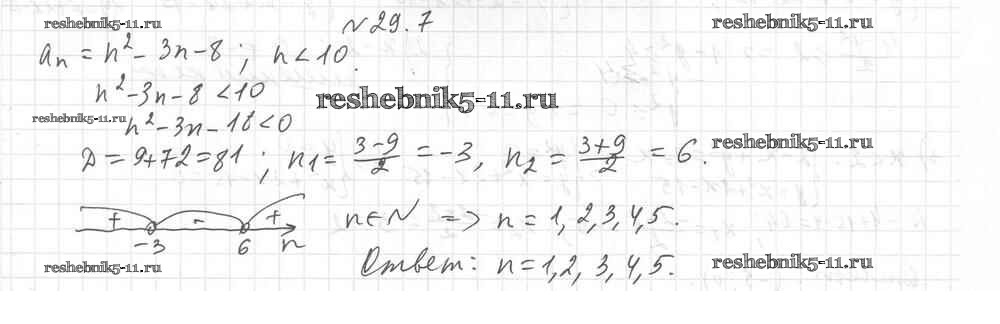 reshebnik5-11.ru №29.7 reshebnik5-11.ru
aₙ = n² - 3n - 8; n < 10.
n² - 3n - 8 < 10
reshebnik5-11.ru
reshebnik5-11.ru n² - 3n - 18 < 0
reshebnik5-11.ru
D = 9 + 72 = 81; n₁ = (3-9)/2 = -3, n₂ = (3+9)/2 = 6.
+ - + n∈N => n = 1, 2, 3, 4, 5.
-3 6 n
Ответ: n = 1, 2, 3, 4, 5.
reshebnik5-11.ru reshebnik5-11.ru